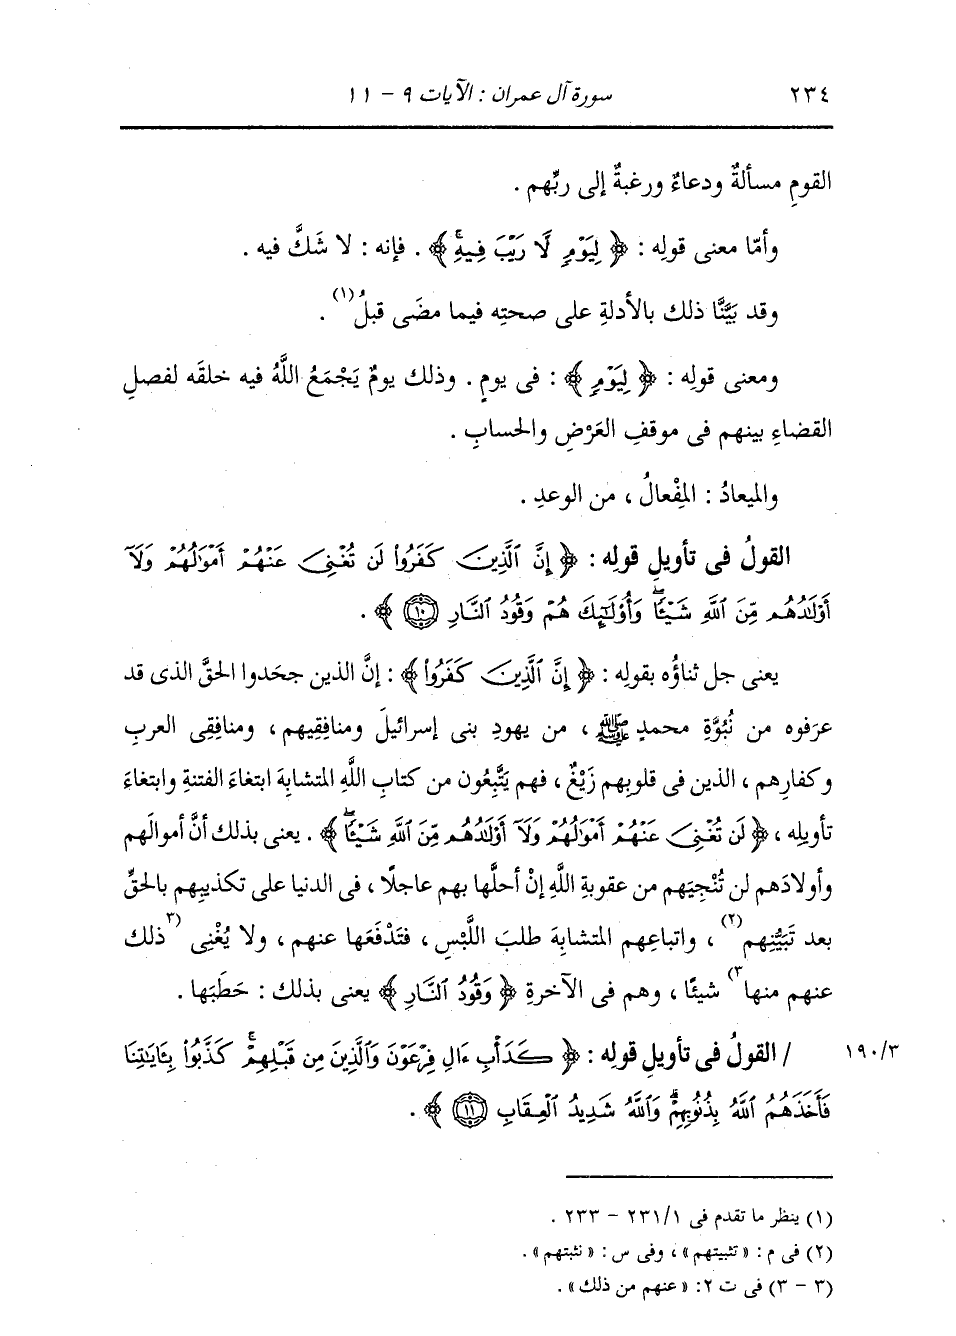 ٢٣٤ سورة آل عمران : الآيات ٩ - ١١
القومِ مسألةٌ ودعاءٌ ورغبةٌ إلى ربِّهم .
وأمّا معنى قولِه : ﴿ لِيَوْمٍ لَّا رَيْبَ فِيهِ ﴾ . فإنه : لا شَكَّ فيه .
وقد بَيَّنَّا ذلك بالأدلةِ على صحتِه فيما مضَى قبلُ(١) .
ومعنى قولِه : ﴿ لِيَوْمٍ ﴾ : فى يومٍ . وذلك يومٌ يَجْمَعُ اللَّهُ فيه خلقَه لفصلِ
القضاءِ بينهم فى موقفِ العَرْضِ والحسابِ .
والميعادُ : المِفْعالُ ، من الوعدِ .
القولُ فى تأويلِ قولِه : ﴿ إِنَّ ٱلَّذِينَ كَفَرُوا۟ لَن تُغْنِىَ عَنْهُمْ أَمْوَٰلُهُمْ وَلَآ
أَوْلَٰدُهُم مِّنَ ٱللَّهِ شَيْـًٔا ۖ وَأُو۟لَٰٓئِكَ هُمْ وَقُودُ ٱلنَّارِ ۝١٠ ﴾ .
يعنى جل ثناؤُه بقولِه : ﴿ إِنَّ ٱلَّذِينَ كَفَرُوا۟ ﴾ : إنَّ الذين جحَدوا الحقَّ الذى قد
عرَفوه من نُبُوَّةِ محمدٍ ﷺ ، من يهودِ بنى إسرائيلَ ومنافِقِيهم ، ومنافِقِى العربِ
وكفارِهم ، الذين فى قلوبِهم زَيْغٌ ، فهم يَتَّبِعُون من كتابِ اللَّهِ المتشابِهَ ابتغاءَ الفتنةِ وابتغاءَ
تأويلِه ، ﴿ لَن تُغْنِىَ عَنْهُمْ أَمْوَٰلُهُمْ وَلَآ أَوْلَٰدُهُم مِّنَ ٱللَّهِ شَيْـًٔا ۖ ﴾ . يعنى بذلك أنَّ أموالَهم
وأولادَهم لن تُنْجِيَهم من عقوبةِ اللَّهِ إنْ أحلَّها بهم عاجلًا ، فى الدنيا على تكذيبِهم بالحقِّ
بعد تَبَيُّنِهم(٢) ، واتباعِهم المتشابِهَ طلبَ اللَّبْسِ ، فتَدْفَعَها عنهم ، ولا يُغْنِى (٣ذلك
عنهم منها٣) شيئًا ، وهم فى الآخرةِ ﴿ وَقُودُ ٱلنَّارِ ﴾ يعنى بذلك : حَطَبَها .
١٩٠/٣ / القولُ فى تأويلِ قولِه : ﴿ كَدَأْبِ ءَالِ فِرْعَوْنَ وَٱلَّذِينَ مِن قَبْلِهِمْ ۚ كَذَّبُوا۟ بِـَٔايَٰتِنَا
فَأَخَذَهُمُ ٱللَّهُ بِذُنُوبِهِمْ ۗ وَٱللَّهُ شَدِيدُ ٱلْعِقَابِ ۝١١ ﴾ .
(١) ينظر ما تقدم فى ٢٣١/١ - ٢٣٣ .
(٢) فى م : « تثبيتهم » ، وفى س : « نثبتهم » .
(٣ - ٣) فى ت ٢: « عنهم من ذلك » .